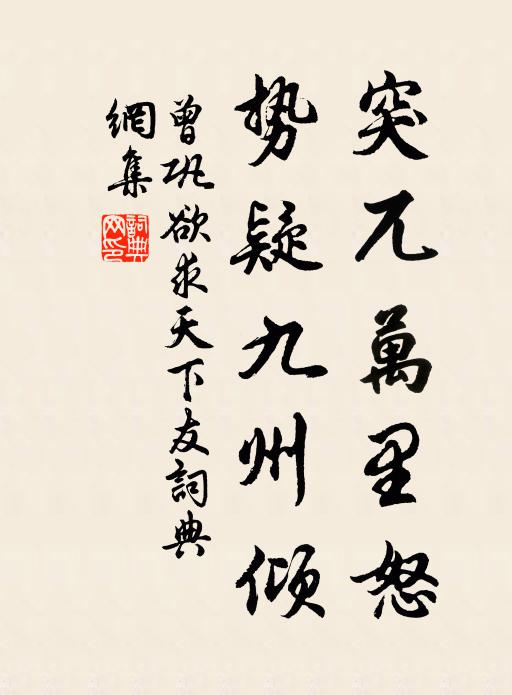 突兀萬里怒
势疑九州倾
曾巩欲求天下友詞典
網集
詞典
网印